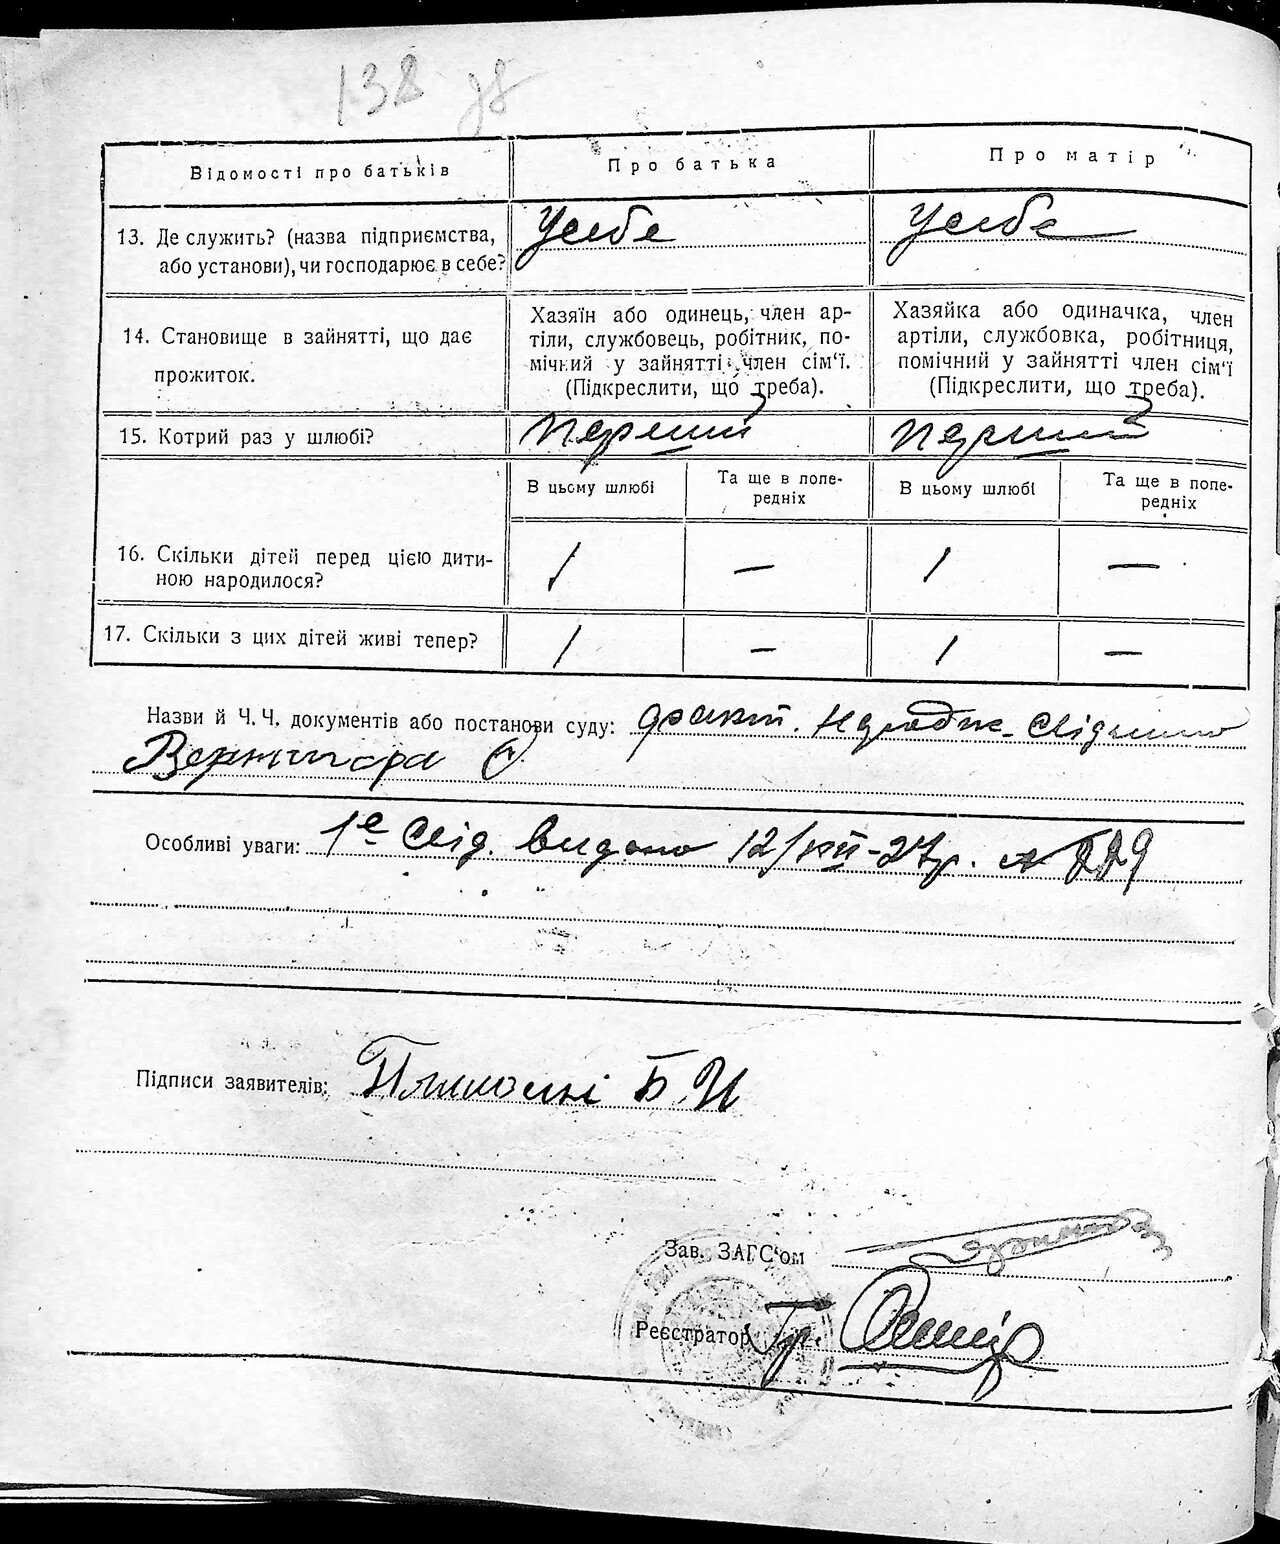 138
Відомості про батьків
Про батька
Про матір
13. Де служить? (назва підприємства,
або установи), чи господарює в себе?
У себе
У себе
14. Становище в зайнятті, що дає
прожиток.
Хазяїн або одинець, член ар-
тіли, службовець, робітник, по-
мічний у зайнятті член сім'ї.
(Підкреслити, що треба).
Хазяйка або одиначка, член
артіли, службовка, робітниця,
помічний у зайнятті член сім'ї
(Підкреслити, що треба).
15. Котрий раз у шлюбі?
Перший
Перший
В цьому шлюбі
Та ще в попе-
редніх
В цьому шлюбі
Та ще в попе-
редніх
16. Скільки дітей перед цією дити-
ною народилося?
1 — 1 —
17. Скільки з цих дітей живі тепер?
1 — 1 —
Назви й Ч. Ч. документів або постанови суду:
Особливі уваги: 1е Свід. видано 12/VII-27р. № 229
Підписи заявителів: Б. И
Зав. ЗАГС'ом
Реєстратор